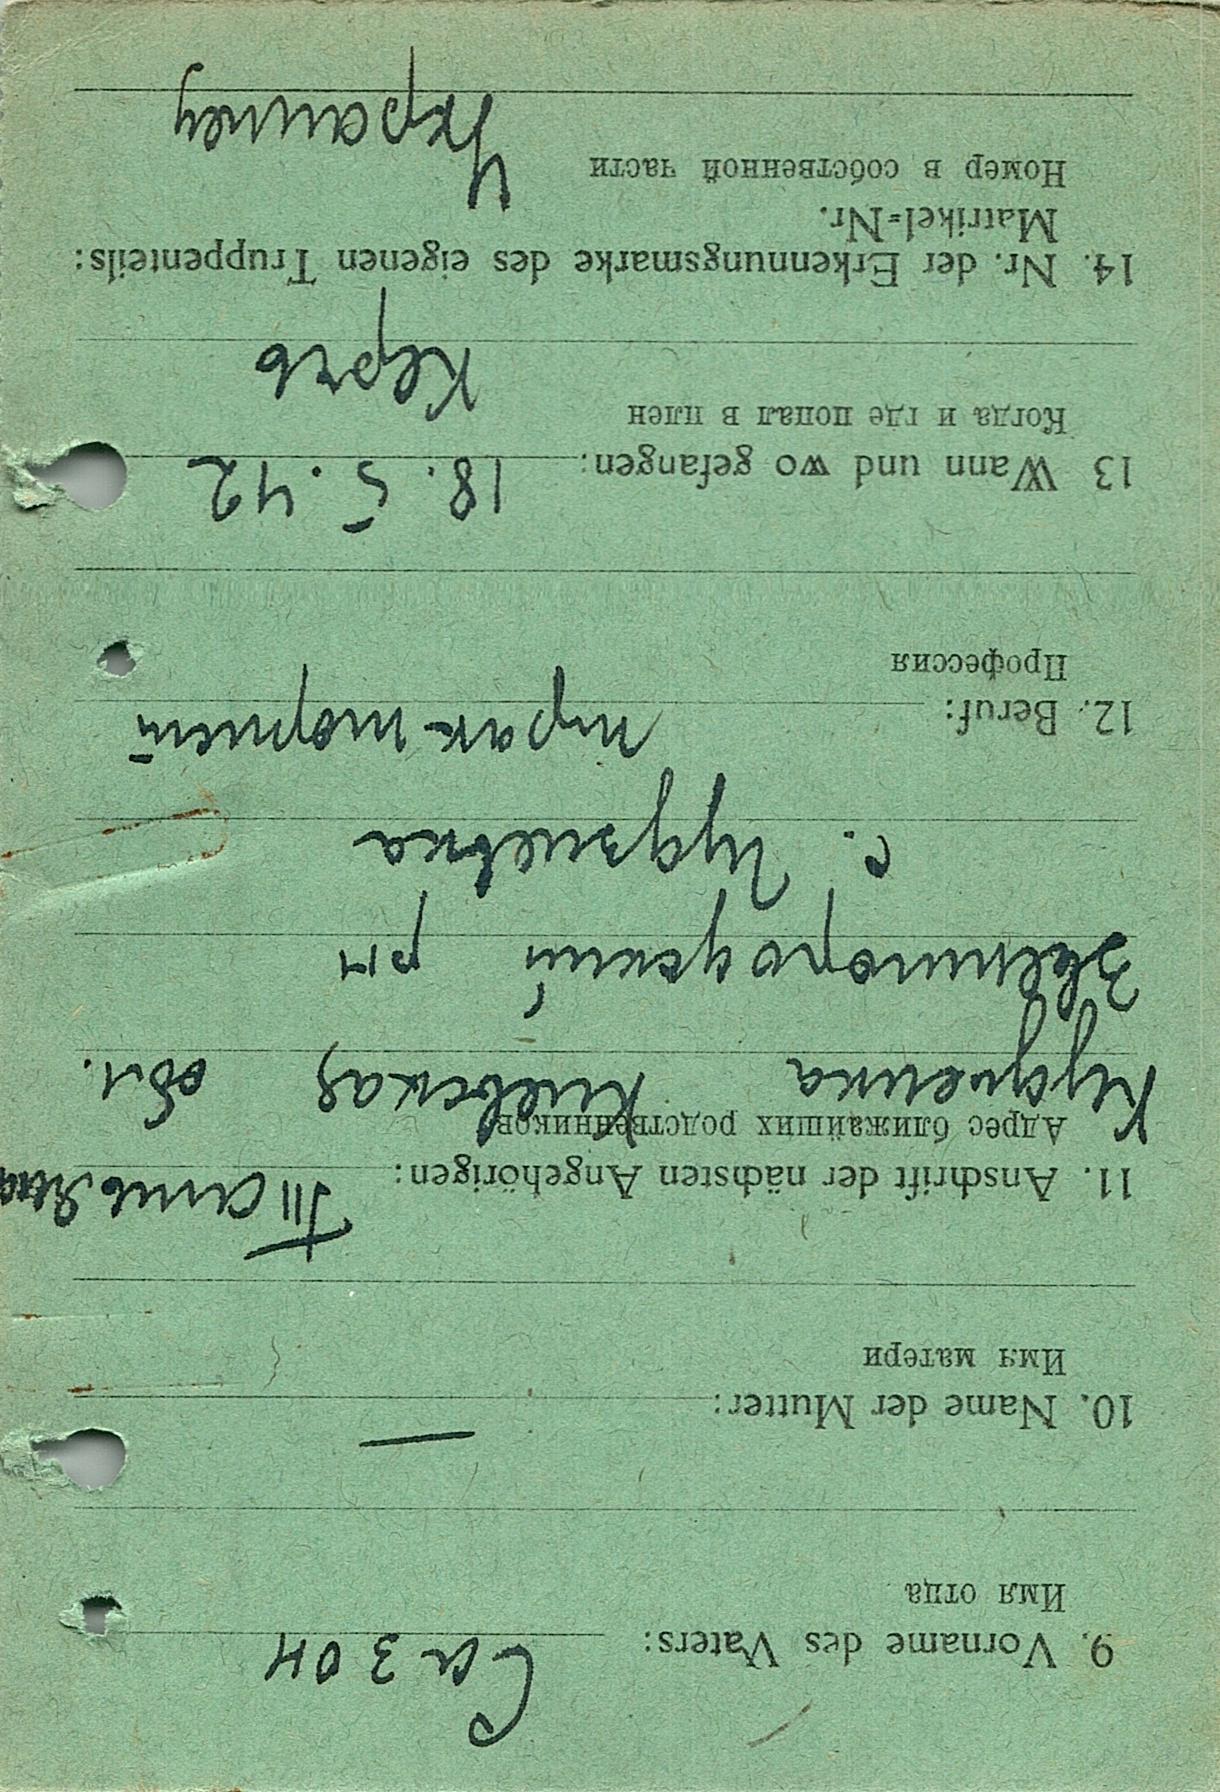 9. Vorname des Vaters: Сазон
Имя отца
10. Name der Mutter: —
Имя матери
11. Anschrift der nächsten Angehörigen:
Адрес ближайших родственников
Киевская обл.
Звенигородский рн
с. Гудзиевка
12. Beruf:
Профессия
13 Wann und wo gefangen: 18. 5. 42
Когда и где попал в плен
Керчь
14. Nr. der Erkennungsmarke des eigenen Truppenteils:
Matrikel-Nr.
Номер в собственной части
Украинец